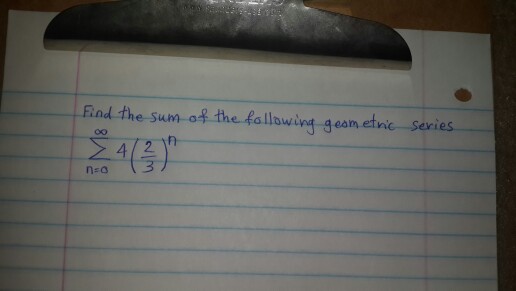 Find the sum of the following geometric series
∞
∑ 4(2/3)^n
n=0